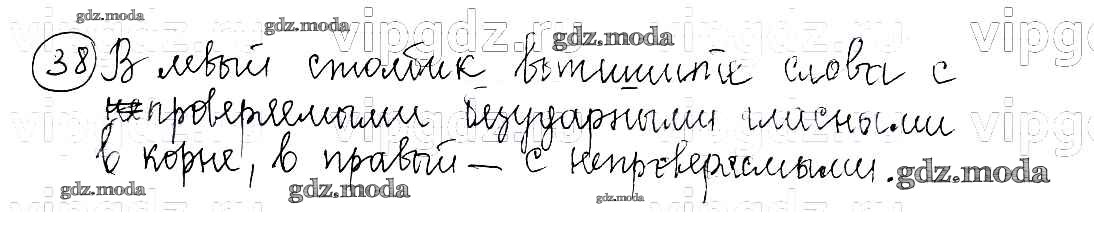 gdz.moda
gdz.moda
vipgdz.ru vipgdz.ru vipgdz
gdz.moda
38 В левый столбик выпишите слова с
проверяемыми безударными гласными
в корне, в правый — с непроверяемыми.
gdz.moda
gdz.moda
gdz.moda
gdz.moda